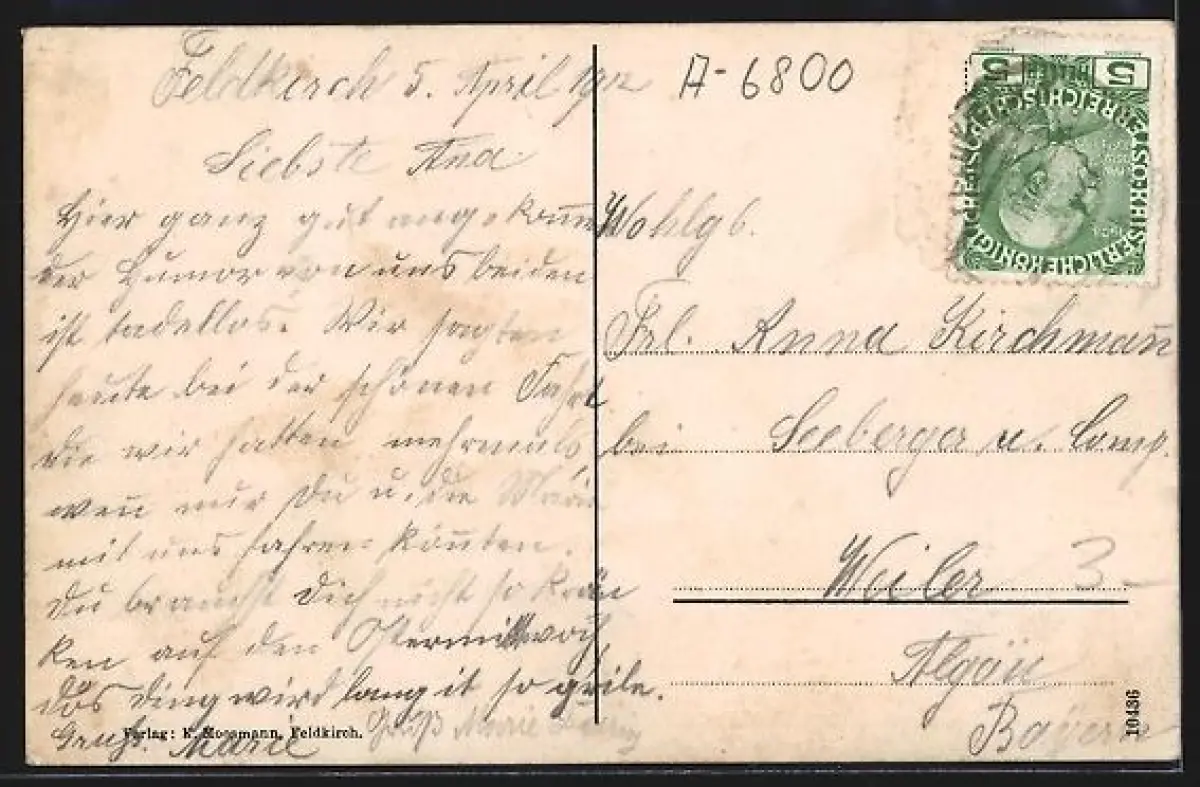 Feldkirch 5. April 1912
Liebste Ana.
Hier ganz gut angekom̅en
der Humor von uns beiden
ist tadellos. Wir sagten
heute bei der schönen Fahrt
die wir hatten mehrmals
wen̅ nur Du u. die
mit uns fahren kön̅ten.
Du brauchst Dich nicht so krän
ken auf den Ostermittwoch,
das Ding wird lang it so
Gruß. Marie Gruß Marie
Verlag: K. Mossmann, Feldkirch.
A-6800
5 HELLER 5
KAISERLICHE KÖNIGLICHE ÖSTERREICHISCHE POST
Wohlgb.
Frl. Anna Kirchman̅
bei Seeberger u. Comp.
Weiler 3-
Algäu
Bayern
10436